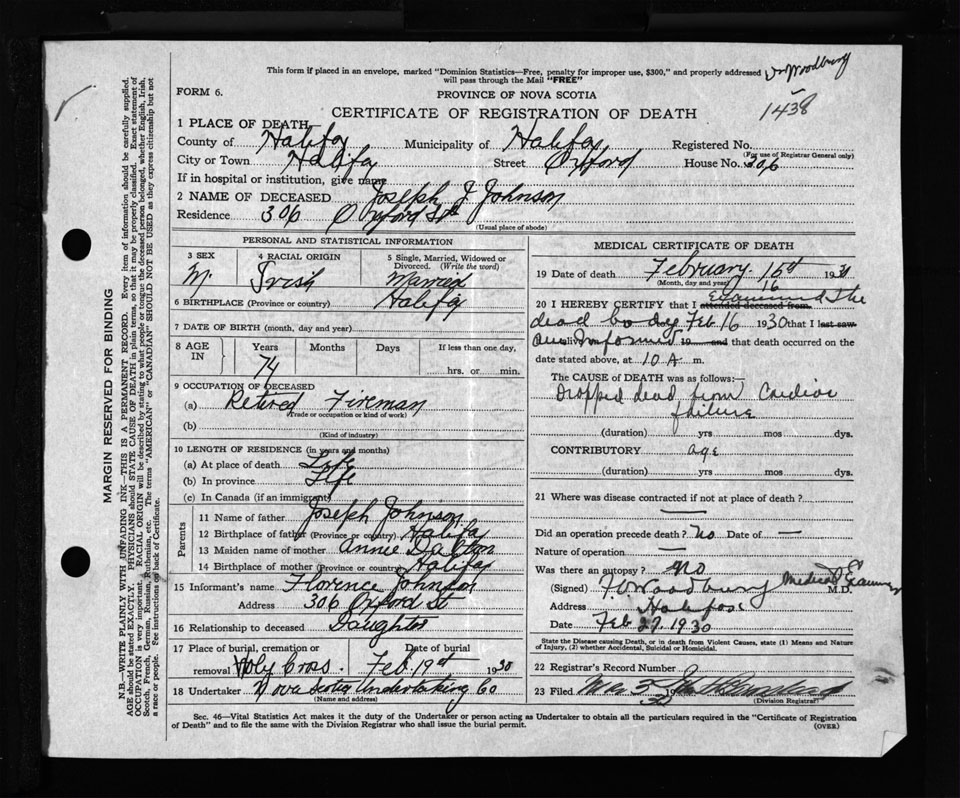 This form if placed in an envelope, marked "Dominion Statistics—Free, penalty for improper use, $300," and properly addressed
will pass through the Mail "FREE"
Dr Woodbury
FORM 6.
PROVINCE OF NOVA SCOTIA
1438
CERTIFICATE OF REGISTRATION OF DEATH
1 PLACE OF DEATH
County of Halifax Municipality of Halifax Registered No.
(For use of Registrar General only)
City or Town Halifax Street Oxford House No. 306
If in hospital or institution, give name
2 NAME OF DECEASED Joseph J Johnson
Residence 306 Oxford St
(Usual place of abode)
PERSONAL AND STATISTICAL INFORMATION
3 SEX 4 RACIAL ORIGIN 5 Single, Married, Widowed or
Divorced. (Write the word)
M. Irish Married
6 BIRTHPLACE (Province or country) Halifax
7 DATE OF BIRTH (month, day and year)
8 AGE IN Years Months Days If less than one day,
74 hrs. or min.
9 OCCUPATION OF DECEASED
(a) Retired Fireman
(Trade or occupation or kind of work)
(b)
(Kind of industry)
10 LENGTH OF RESIDENCE (in years and months)
(a) At place of death Life
(b) In province Life
(c) In Canada (if an immigrant)
Parents
11 Name of father Joseph Johnson
12 Birthplace of father (Province or country) Halifax
13 Maiden name of mother Annie Dalton
14 Birthplace of mother (Province or country) Halifax
15 Informant's name Florence Johnson
Address 306 Oxford St
16 Relationship to deceased Daughter
17 Place of burial, cremation or Date of burial
removal Holy Cross. Feb. 19st 1930
18 Undertaker Nova Scotia Undertaking Co
(Name and address)
MEDICAL CERTIFICATE OF DEATH
19 Date of death February 15st 193
(Month, day and year) 16
20 I HEREBY CERTIFY that I attended deceased from Examined the
dead body Feb 16 1930 that I last saw
alive Informed 19 and that death occurred on the
date stated above, at 10 A m.
The CAUSE of DEATH was as follows:—
Dropped dead from Cardiac
failure
(duration) yrs mos dys.
CONTRIBUTORY age
(duration) yrs mos dys.
21 Where was disease contracted if not at place of death? —
Did an operation precede death? no Date of —
Nature of operation —
Was there an autopsy? no
(Signed) F. Woodbury Medical Examiner M.D.
Address Halifax
Date Feb 27. 1930
State the Disease causing Death, or in death from Violent Causes, state (1) Means and Nature
of Injury, (2) whether Accidental, Suicidal or Homicidal.
22 Registrar's Record Number
23 Filed Mar 3 19
30
(Division Registrar)
Sec. 46—Vital Statistics Act makes it the duty of the Undertaker or person acting as Undertaker to obtain all the particulars required in the "Certificate of Registration
of Death" and to file the same with the Division Registrar who shall issue the burial permit.
(OVER)
MARGIN RESERVED FOR BINDING
N.B.—WRITE PLAINLY WITH UNFADING INK—THIS IS A PERMANENT RECORD. Every item of information should be carefully supplied.
AGE should be stated EXACTLY. PHYSICIANS should STATE CAUSE OF DEATH in plain terms, so that it may be properly classified. Exact statement of
OCCUPATION is very important. RACIAL ORIGIN will be described by stating to what people or tongue the deceased person belonged, whether English, Irish,
Scotch, French, German, Russian, Ruthenian, etc. The terms "AMERICAN" or "CANADIAN" SHOULD NOT BE USED as they express citizenship but not
a race or people. See instructions on back of Certificate.